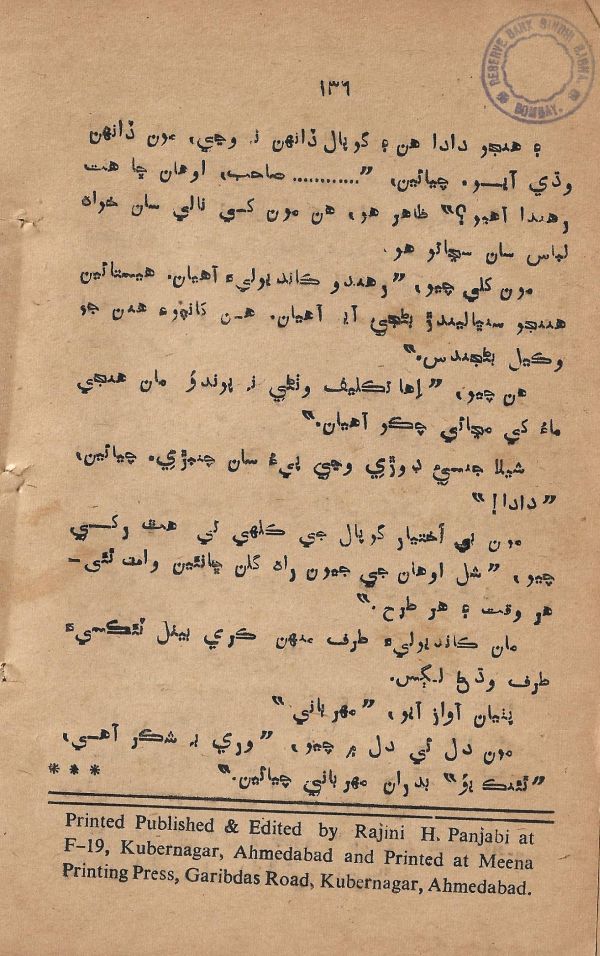 RESERVE BANK SINDHI SABHA
BOMBAY.
١٣٦
۽ هنجو دادا هن ۽ گوپال ڏانهن نہ وڃي، مون ڏانهن
وڌي آيو. چيائين، ”............ صاحب، اوهان ڇا هت
رهندا آهيو؟“ ظاهر هو، هن مون کسي نالي سان خواه
لباس سان سڃاتو هو.
مون کلي چيو، ”رهندو کانديوليءَ آهيان. هيستائين
هنجو سنڀاليندڙ بڻجي آيو آهيان. هن ڪانپوءِ هنن جو
وڪيل بڻجندس.“
هن چيو، ”اِها تڪليف وٺڻي نہ پوندوَ مان هنجي
ماءُ کي مڃائي چڪو آهيان.“
شيلا جنسيءَ ڊوڙي وڃي پيءُ سان چنبڙي. چيائين،
”دادا!“
مون بي اختيار گوپال جي ڪلهي تي هٿ رکي
چيو، ”شل اوهان جي جيون راه گلن ڇانئين وامڻ ٿئي-
هر وقت ۽ هر طرح.“
مان کانديوليءَ طرف منهن ڪري بيٺل ٽئڪسيءَ
طرف وڌڻ لڳس.
پٺيان آواز آيو، ”مهرباني“
مون دل ئي دل ۾ چيو، ”وري بہ شڪر آهي،
”ٿئنڪ يوُ“ بدران مهرباني چيائين.“
* * *
Printed Published & Edited by Rajini H. Panjabi at
F-19, Kubernagar, Ahmedabad and Printed at Meena
Printing Press, Garibdas Road, Kubernagar, Ahmedabad.